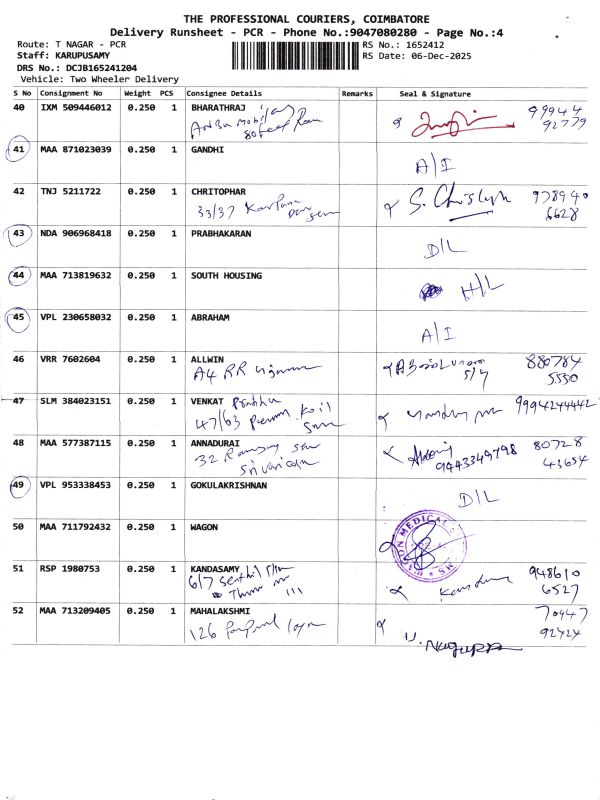 THE PROFESSIONAL COURIERS, COIMBATORE
Delivery Runsheet - PCR - Phone No.:9047080280 - Page No.:4
Route: T NAGAR - PCR
RS No.: 1652412
Staff: KARUPUSAMY
RS Date: 06-Dec-2025
DRS No.: DCJB165241204
Vehicle: Two Wheeler Delivery
S No Consignment No Weight PCS Consignee Details Remarks Seal & Signature
40 IXM 509446012 0.250 1 BHARATHRAJ 99944
92779
80 feet
41 MAA 871023039 0.250 1 GANDHI
A/I
42 TNJ 5211722 0.250 1 CHRITOPHAR
33/37 S. 978940
6628
43 NDA 906968418 0.250 1 PRABHAKARAN
D/L
44 MAA 713819632 0.250 1 SOUTH HOUSING
H/L
45 VPL 230658032 0.250 1 ABRAHAM
A/I
46 VRR 7602604 0.250 1 ALLWIN 880784
A4 RR 5550
47 SLM 384023151 0.250 1 VENKAT Prabhu 9994244442
47/63
48 MAA 577387115 0.250 1 ANNADURAI 80728
32 9443349798 43654
49 VPL 953338453 0.250 1 GOKULAKRISHNAN
D/L
50 MAA 711792432 0.250 1 WAGON
WAGON MEDICAL
51 RSP 1980753 0.250 1 KANDASAMY 948610
6/7 6527
52 MAA 713209405 0.250 1 MAHALAKSHMI 70947
126 92424